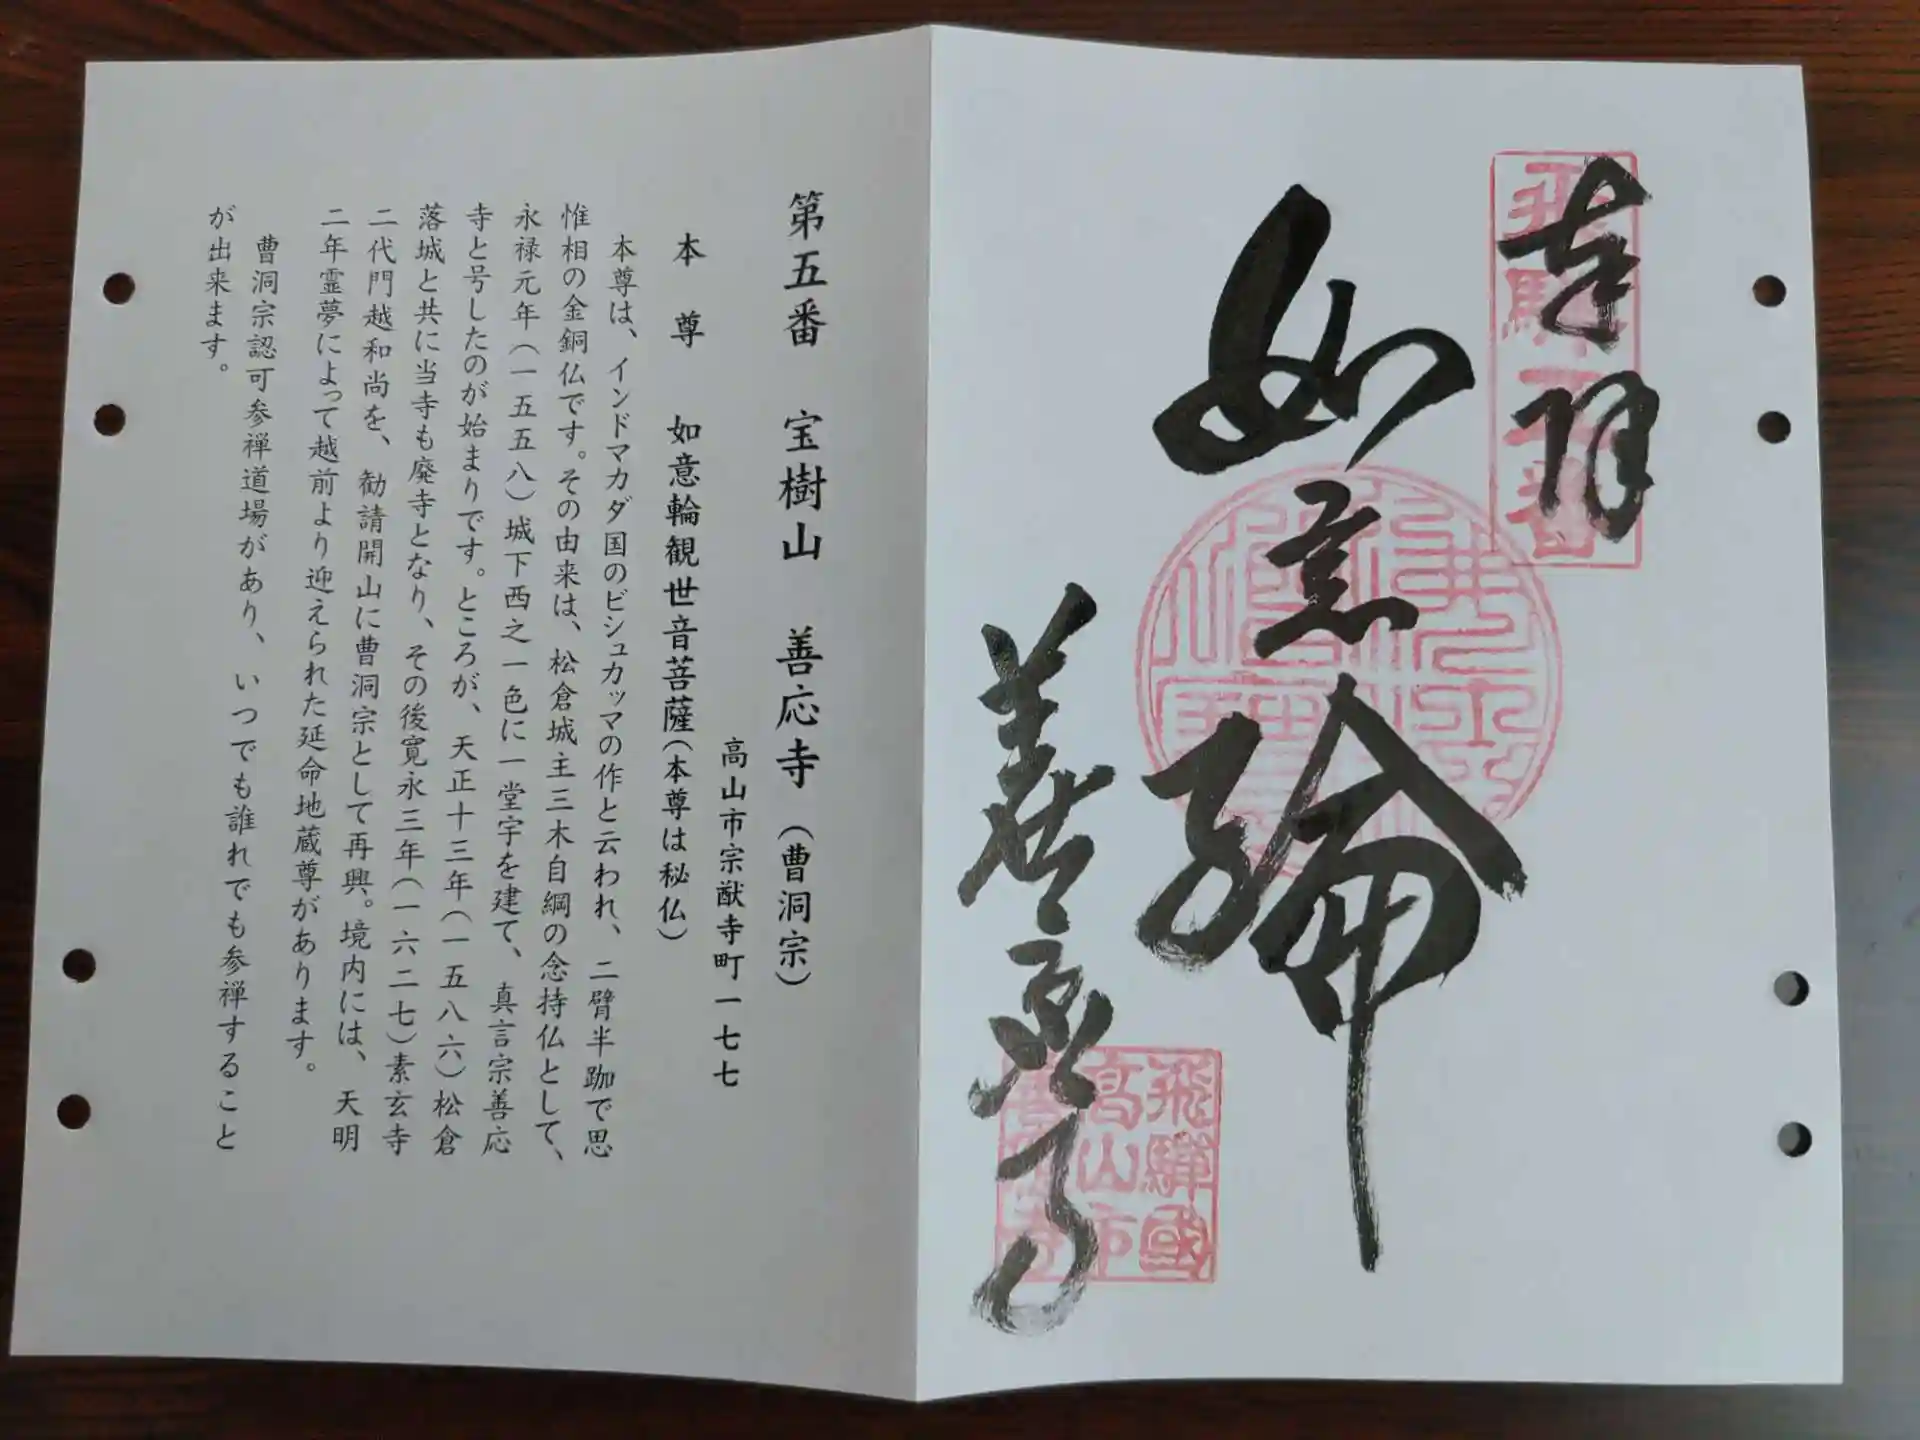 奉拝
飛騨五番
如意輪
善應寺
飛騨國
高山市
善應寺
第五番　宝樹山　善応寺（曹洞宗）
高山市宗猷寺町一七七
本　尊　如意輪観世音菩薩（本尊は秘仏）
本尊は、インドマカダ国のビシュカッマの作と云われ、二臂半跏で思
惟相の金銅仏です。その由来は、松倉城主三木自綱の念持仏として、
永禄元年（一五五八）城下西之一色に一堂宇を建て、真言宗善応
寺と号したのが始まりです。ところが、天正十三年（一五八六）松倉
落城と共に当寺も廃寺となり、その後寛永三年（一六二七）素玄寺
二代門越和尚を、勧請開山に曹洞宗として再興。境内には、天明
二年霊夢によって越前より迎えられた延命地蔵尊があります。
曹洞宗認可参禅道場があり、いつでも誰れでも参禅すること
が出来ます。